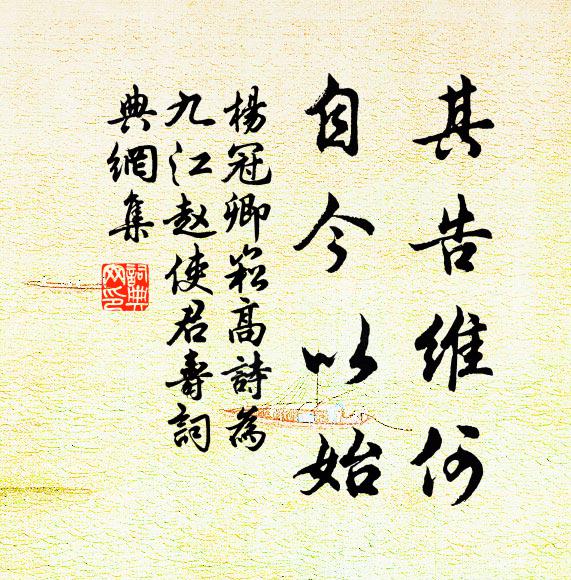 其告維何
自今以始
楊冠卿崧高詩為
九江趙使君壽詞
典網集
詞典
网印